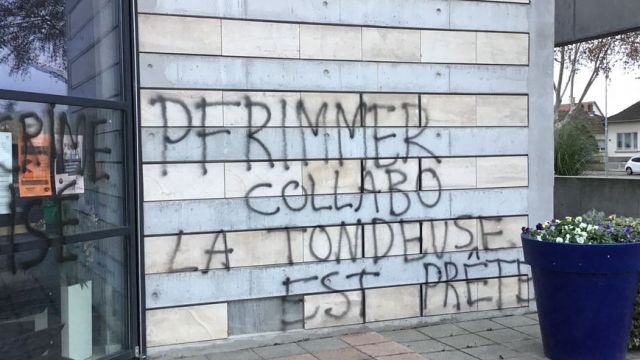 PFRIMMER
COLLABO
LA TONDEUSE
EST PRÊTE